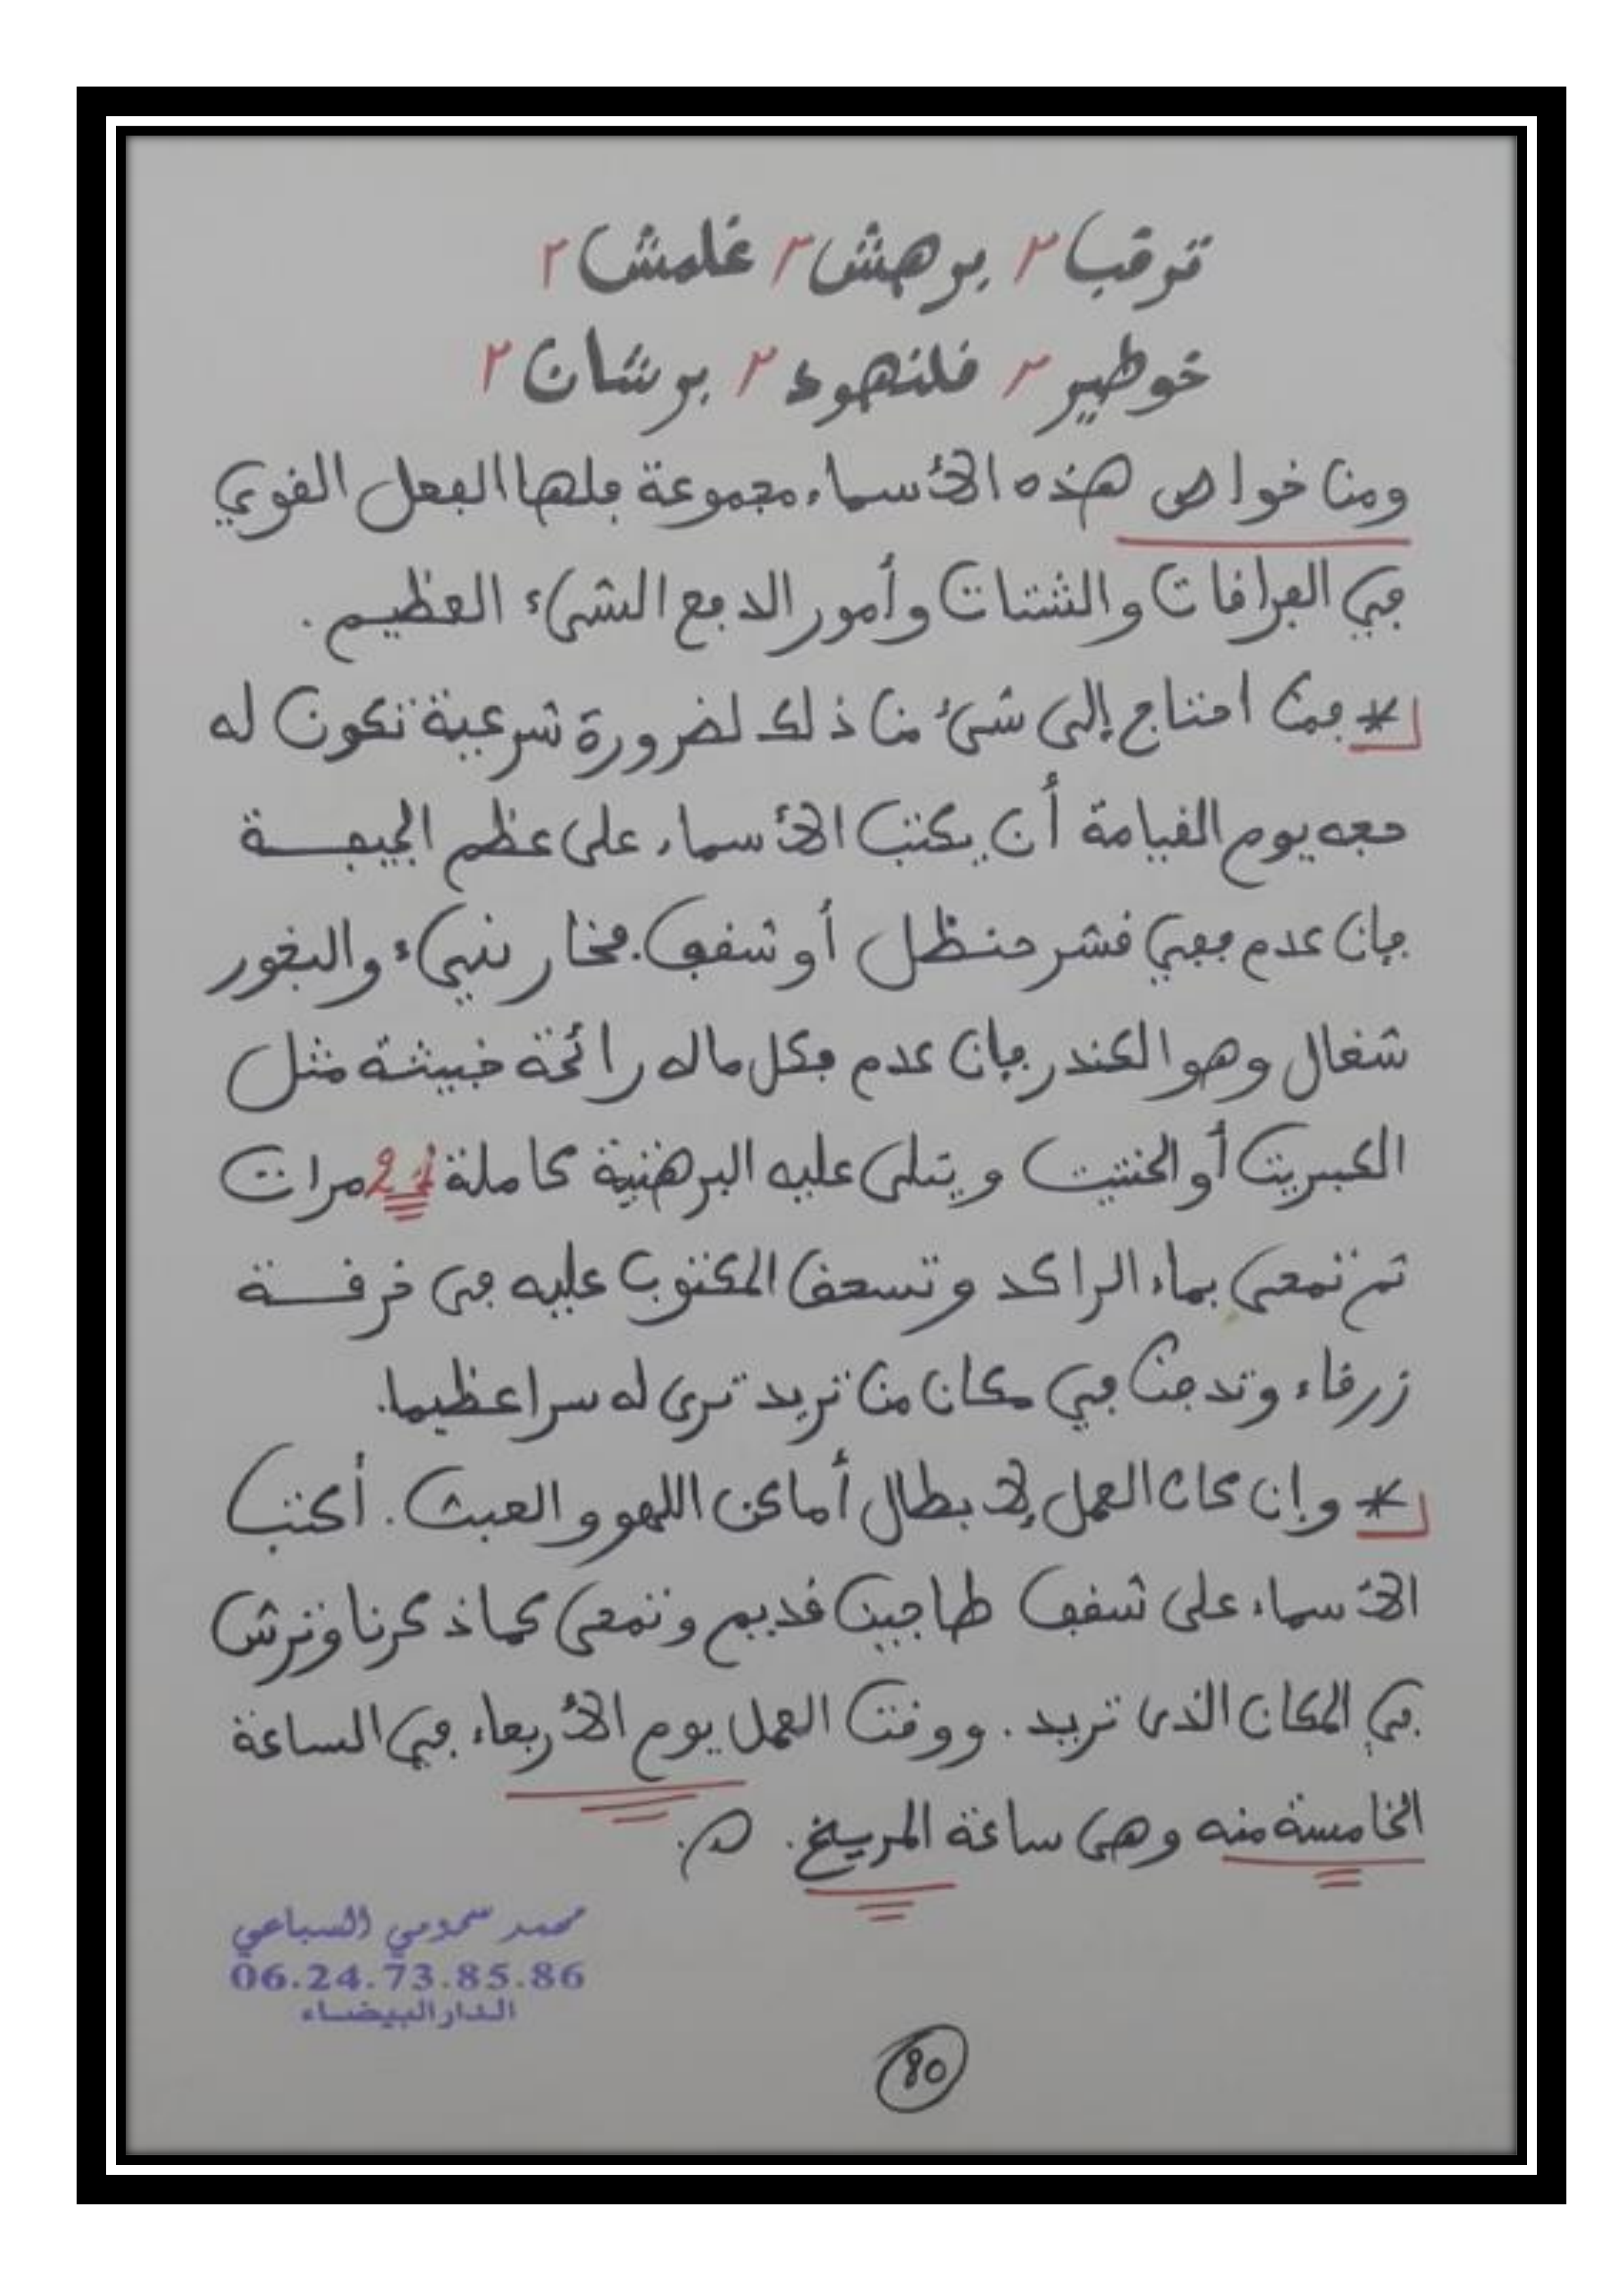 ترقب ٢ برهش ٢ غلمش ٢
خوطير ٢ قلنهود ٢ برشان ٢
ومن خواص هذه الأسماء مجموعة فلها الفعل القوي
في الفراقات والشتات وأمور الدفع الشيء العظيم.
* فمن احتاج إلى شيء من ذلك لضرورة شرعية تكون له
حجه يوم القيامة أن يكتب الأسماء على عظم الجيفـــة
فإن عدم ففي قشر حنظل أو شقف. فخار نيء والبخور
شغال وهو الكندر فإن عدم فكل ماله رائحة خبيثة مثل
الكبريت أو الحنتيت ويتلى عليه البرهتية كاملة 21 مرات
تم تمحى بماء الراكد وتسحق المكتوب عليه في خرقـــة
زرقاء وتدفن في مكان من تريد ترى له سرا عظيما.
* وإن كان العمل لإبطال أماكن اللهو والعبث. أكتب
الأسماء على شقف طاجين قديم وتمحى كما ذكرنا وترش
في المكان الذي تريد. ووقت العمل يوم الأربعاء في الساعة
الخامسة منه وهي ساعة المريخ.
محمد سمومي السباعي
06.24.73.85.86
الدار البيضاء
80